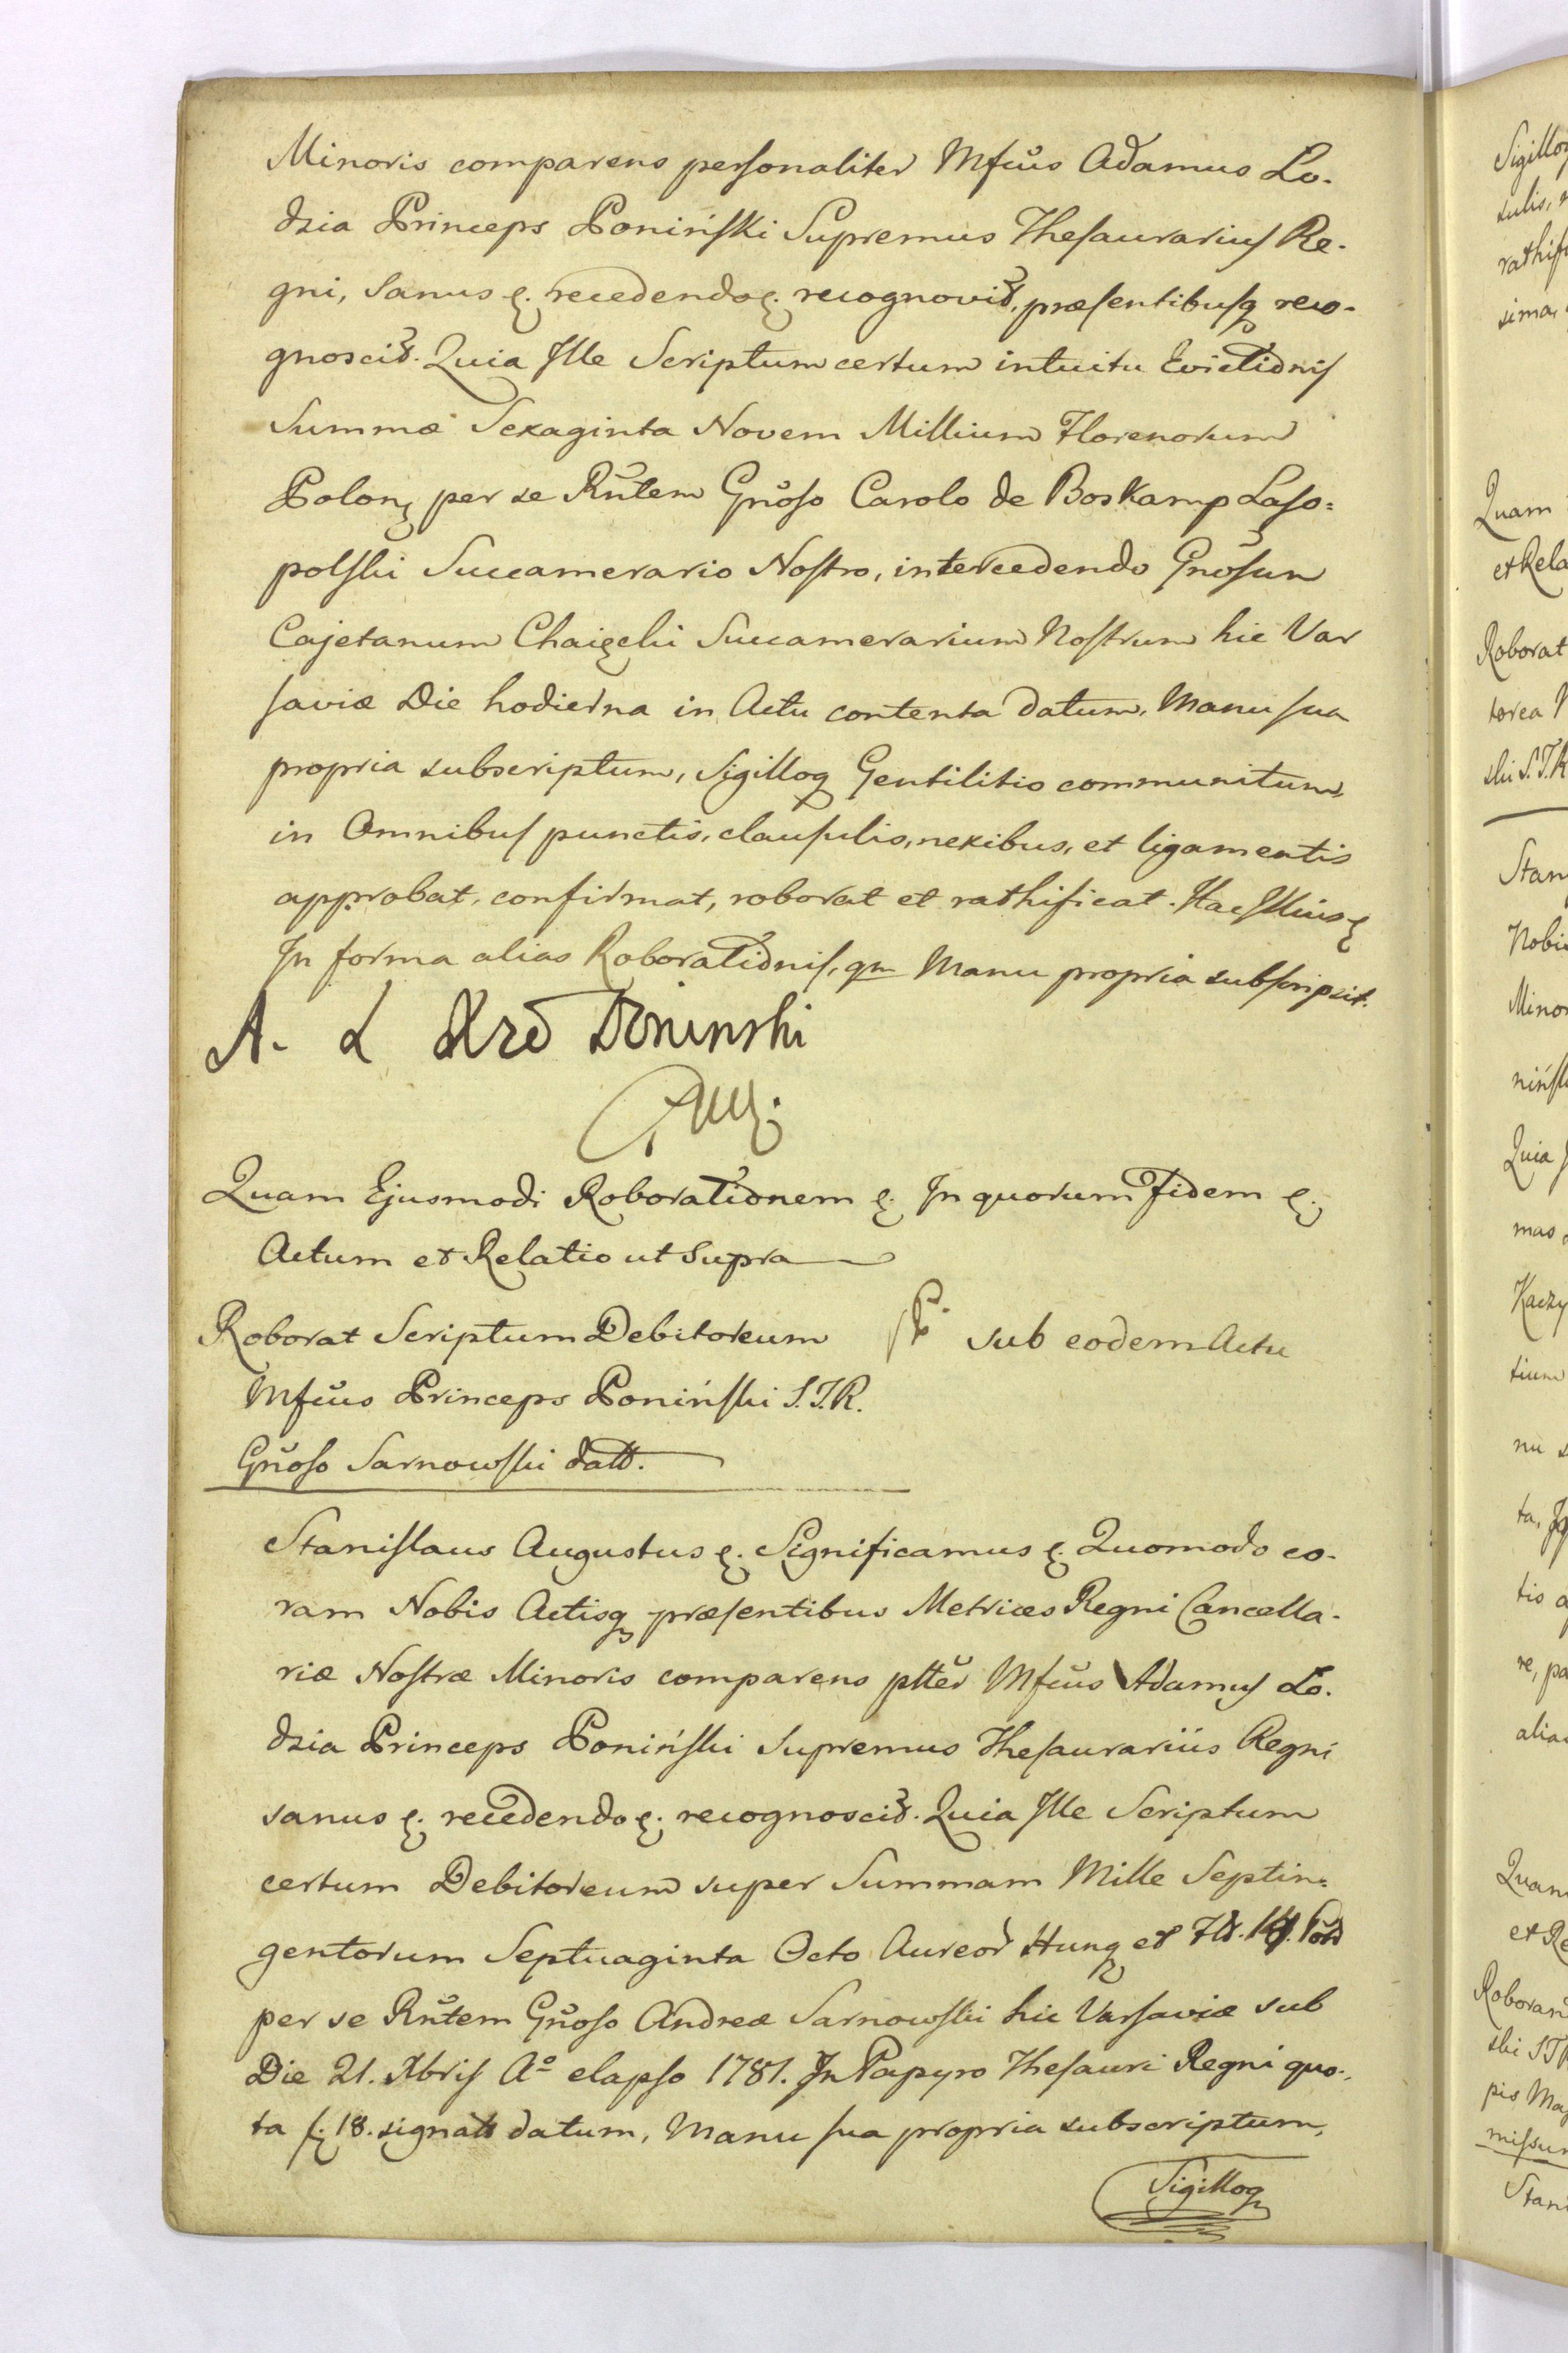 Minoris comparens personaliter Mfcus Adamus Lo-
dzia Princeps Poniński Supremus Thesaurarius Re-
gni, Sanus &. recedendo &. recognovit, præsentibusq reco-
gnoscit. Quia Ille Scriptum certum intuitu Evictionis
Summæ Sexaginta Novem Millium Florenorum
Polon, per se Rntem Gnoso Carolo de Boskamp Laso=
polski Succamerario Nostro, intercedendo Gnosum
Cajetanum Succamerarium Nostrum hic Var
saviæ Die hodierna in Actu contenta datum, Manu sua
propria subscriptum, Sigilloq Gentilitio communitum,
in Omnibus punctis, clausulis, nexibus, et ligamentis
approbat, confirmat, roborat et rathificat. Hac Illius &
In forma alias Roborationis, qm Manu propria subscripsit.
A. Ł Xże Poninski
Quam Ejusmodi Roborationem &. In quorum Fidem &.
Actum et Relatio ut Supra
Roborat Scriptum Debitoreum sub eodem Actu
Mfcus Princeps Poniński S.T.R.
Gnoso Sarnowski datt.
Stanislaus Augustus &. Significamus &. Quomodo co-
ram Nobis Actisq præsentibus Metrices Regni Cancella-
riæ Nostræ Minoris comparens pltter Mfcus Adamus Lo-
dzia Princeps Poniński Supremus Thesaurarius Regni
sanus &. recedendo &. recognoscit. Quia Ille Scriptum
certum Debitoreum super Summam Mille Septin=
gentorum Septuaginta Octo Aureor Hung et Fl.
per se Rntem Gnoso Andreæ Sarnowski hic Varsaviæ sub
Die 21. Xbris Aº elapso 1781. In Papyro Thesauri Regni quo-
ta f. 18. signatt datum, Manu sua propria subscriptum,
Sigilloq